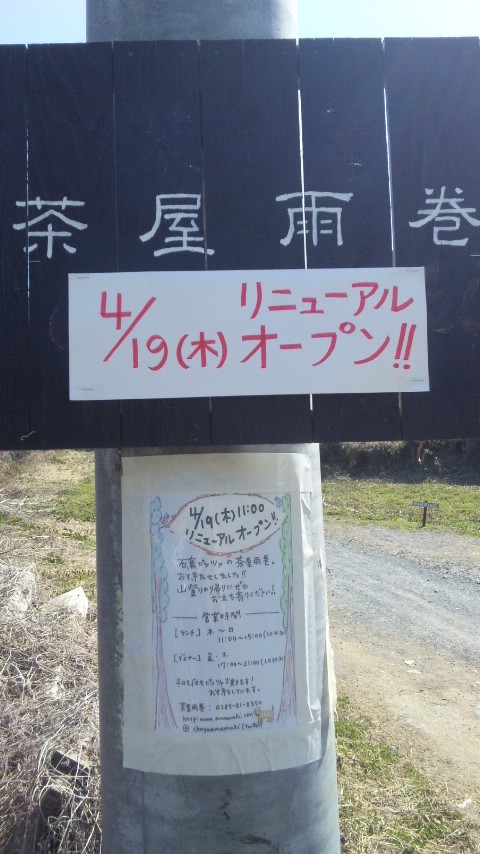 茶屋雨巻
4/19(木) リニューアル
オープン!!
4/19(木)11:00
リニューアルオープン!!
石窯ピッツァの茶屋雨巻。
お待たせしました!!
山登りの帰りにぜひ
お立ち寄りください!!
営業時間
[ランチ] 木 〜 日
11:00〜15:00
[ディナー] 金・土
17:30〜21:00
お待ちしています。
茶屋雨巻: